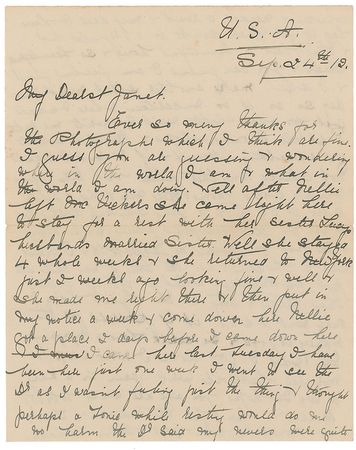 U. S. A.
Sep. 24th 13.
My Dearst Janet.
Ever so many thanks for
the Photographs which I think are fine.
I guess you are guessing & wondering
why in the world I am & what in
the world I am doing. Well after Nellie
left Mc Vickers she came right here
to stay for a rest with her sister
husbands married Sister. Well she stayed
4 whole weeks & she returned to New York
just 2 weeks ago looking fine & well &
she made me right there & then put in
my notice a week & come down here Nellie
got a place 2 days before I came down here
I came here last Tuesday I have
been here just one week I went to see the
Dr as I wasn't feeling just the thing & thought
perhaps a tonic while resting would do me
no harm the Dr said my nerves were quite